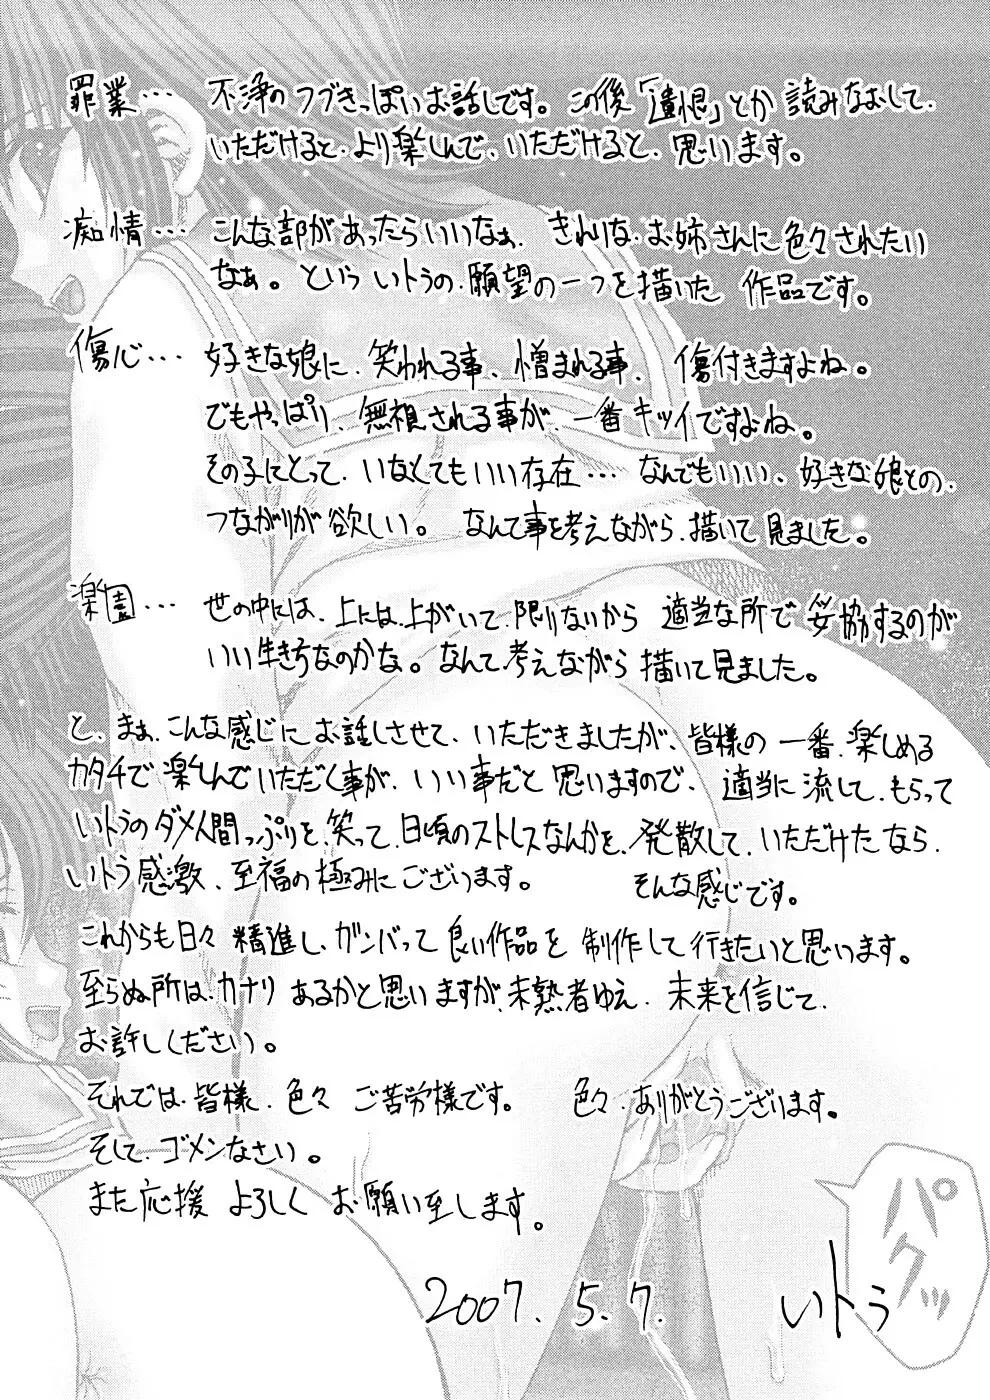 罪業… 不浄のつづきっぽいお話しです。この後「遺恨」とか読みなおして、
いただけると、より楽しんで、いただけると、思います。
痴情… こんな部があったらいいなぁ、きれいな、お姉さんに色々されたい
なぁ。というイトうの、願望の一つを描いた 作品です。
傷心… 好きな娘に、笑われる事、憎まれる事、傷付きますよね。
でもやっぱり、無視される事が、一番キツイですよね。
その子にとって、いなくてもいい存在… なんでもいい、好きな娘との、
つながりが欲しい。なんて事を考えながら、描いて見ました。
楽園… 世の中には、上には、上がいて、限りないから 適当な所で妥協するのが
いい生き方なのかな。なんて考えながら描いて見ました。
と、まぁ、こんな感じにお話しさせて、いただきましたが、皆様の一番、楽しめる
カタチで楽しんでいただく事が、いい事だと思いますので、適当に流して、もらって
いトうのダメ人間っぷりを、笑って、日頃のストレスなんかを、発散して、いただけたなら、
いトう感激、至福の極みにございます。 そんな感じです。
これからも日々精進し、ガンバって良い作品を制作して行きたいと思います。
至らぬ所は、カナリあるかと思いますが、未熟者ゆえ、未来を信じて、
お許しください。
それでは、皆様、色々ご苦労様です。色々、ありがとうございます。
そして、ゴメンなさい。
また応援よろしくお願い至します。
2007.5.7. いトう
パクッ